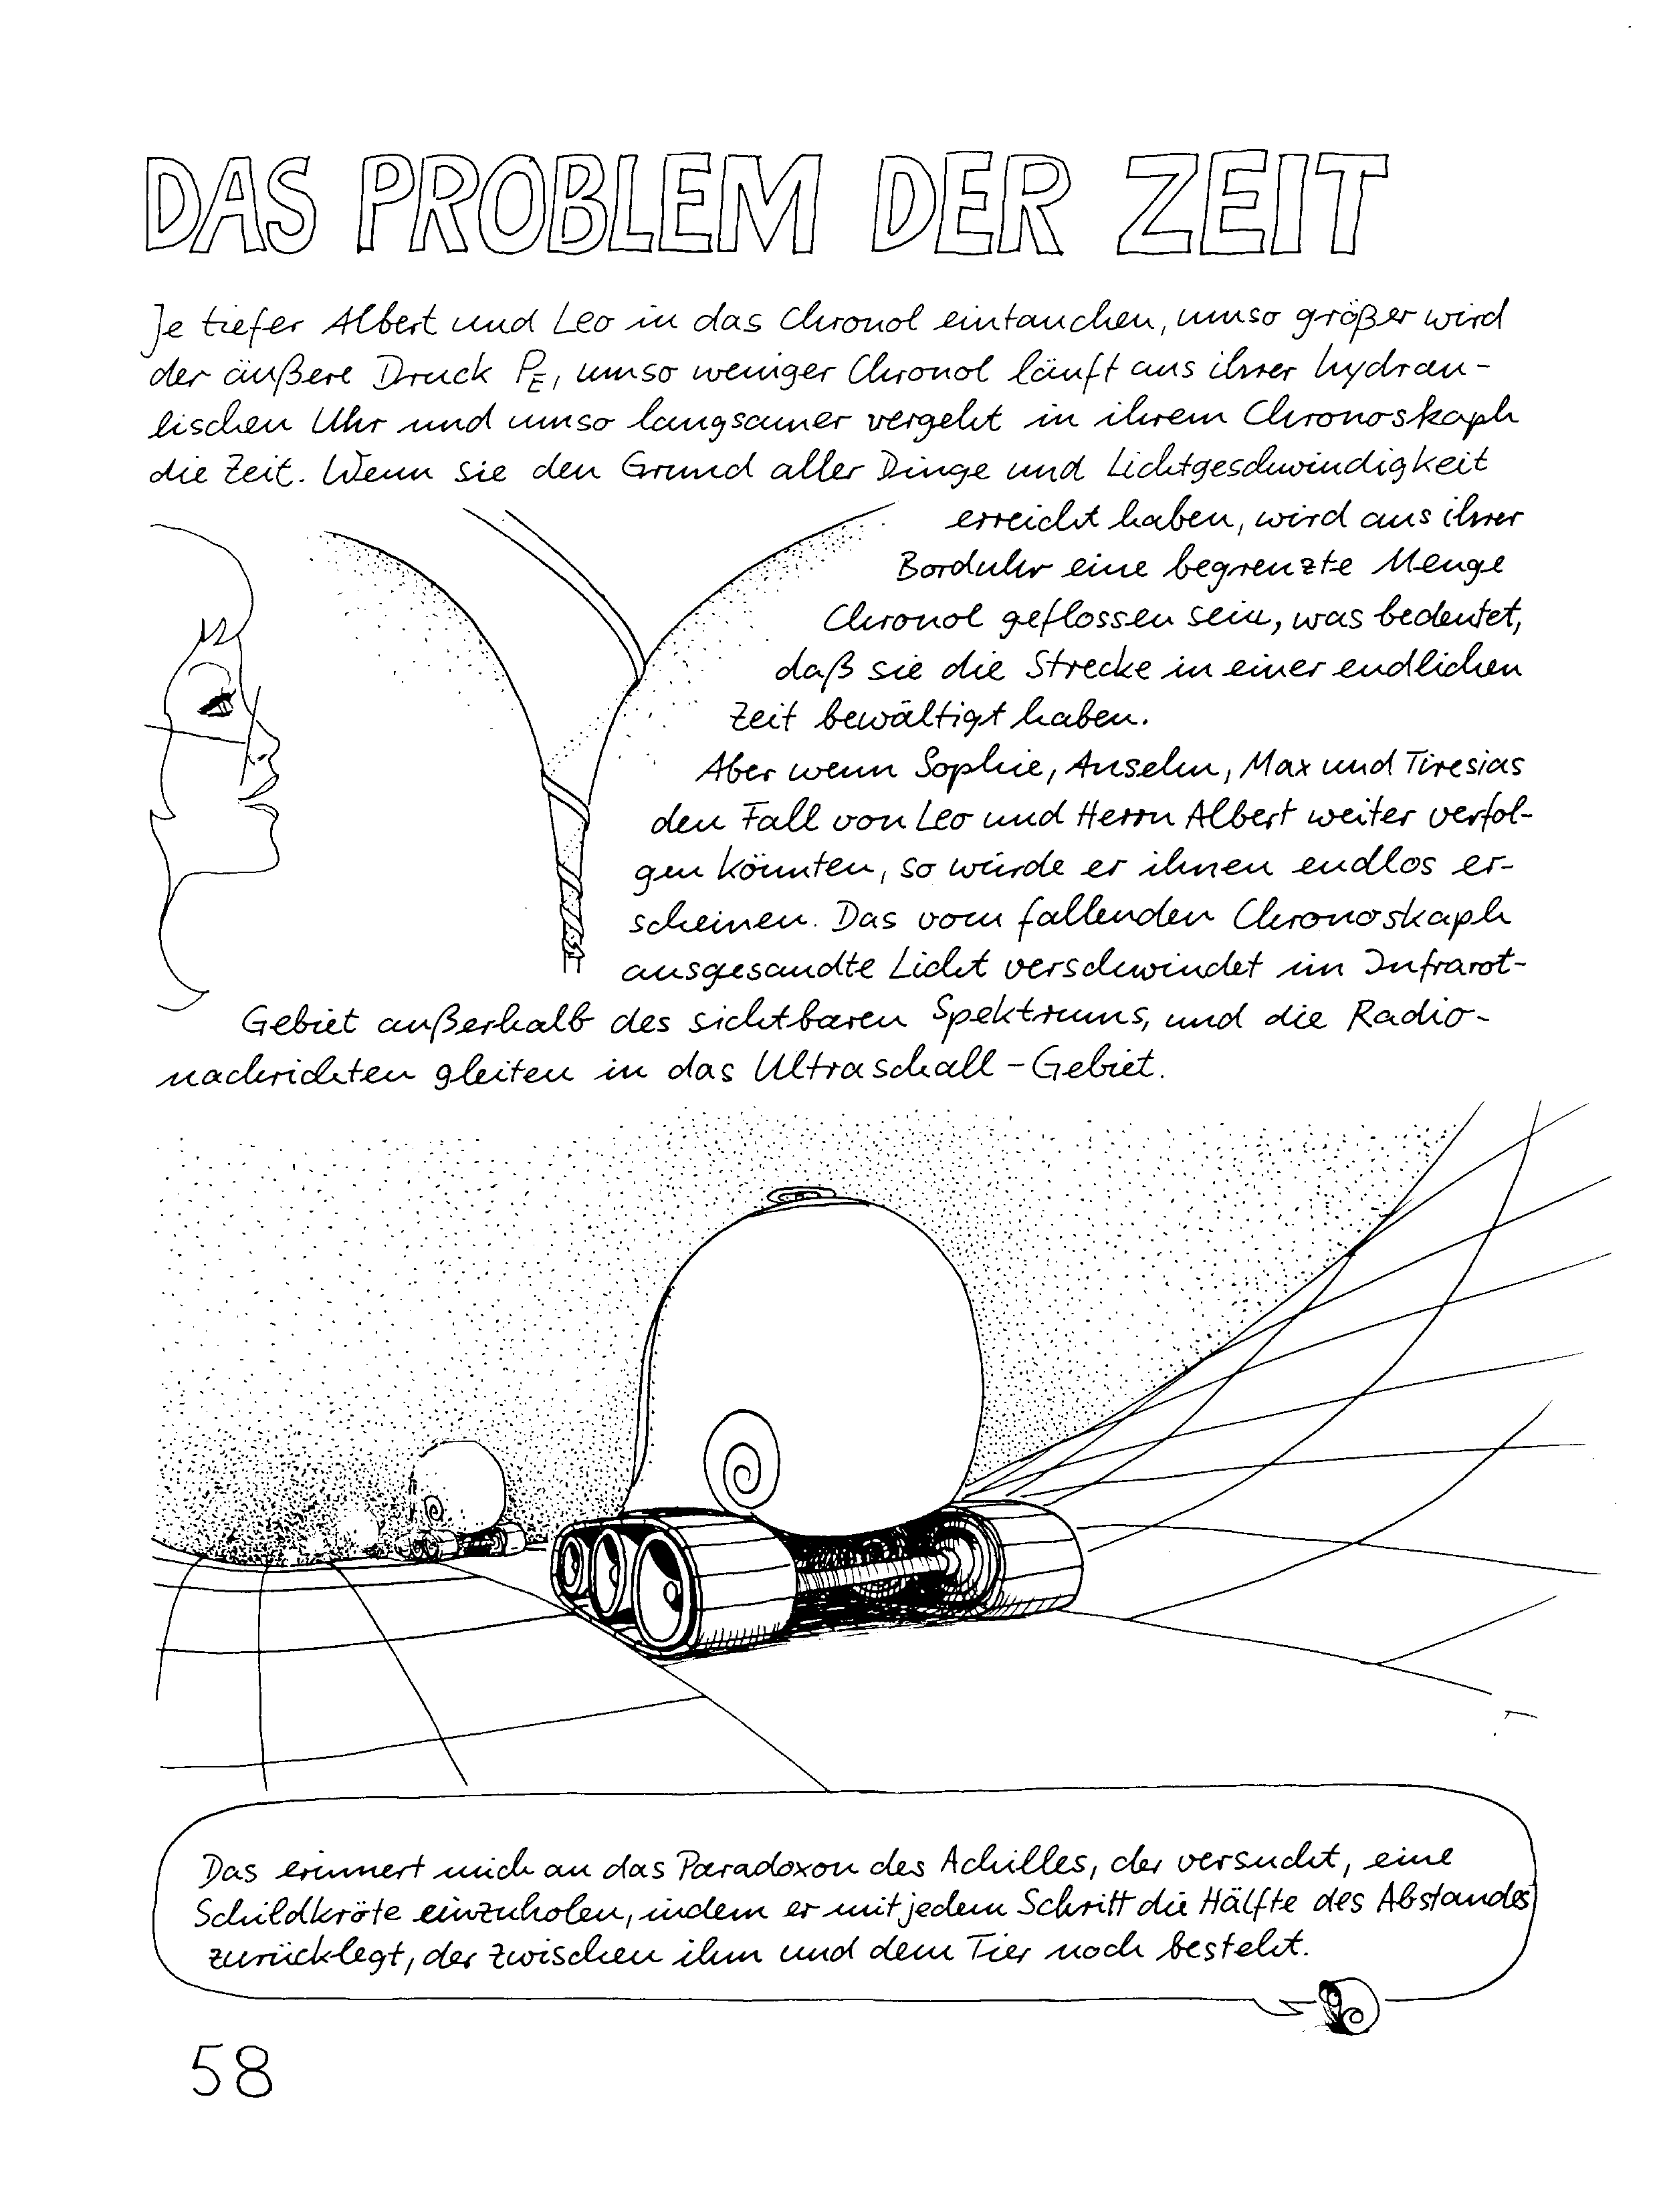 DAS PROBLEM DER ZEIT
Je tiefer Albert und Leo in das Chronol eintauchen, umso größer wird
der äußere Druck PE, umso weniger Chronol läuft aus ihrer hydrau-
lischen Uhr und umso langsamer vergeht in ihrem Chronoskaph
die Zeit. Wenn sie den Grund aller Dinge und Lichtgeschwindigkeit
erreicht haben, wird aus ihrer
Borduhr eine begrenzte Menge
Chronol geflossen sein, was bedeutet,
daß sie die Strecke in einer endlichen
Zeit bewältigt haben.
Aber wenn Sophie, Anselm, Max und Tiresias
den Fall von Leo und Herrn Albert weiter verfol-
gen könnten, so würde er ihnen endlos er-
scheinen. Das vom fallenden Chronoskaph
ausgesandte Licht verschwindet im Infrarot-
Gebiet außerhalb des sichtbaren Spektrums, und die Radio-
nachrichten gleiten in das Ultraschall-Gebiet.
Das erinnert mich an das Paradoxon des Achilles, der versucht, eine
Schildkröte einzuholen, indem er mit jedem Schritt die Hälfte des Abstandes
zurücklegt, der zwischen ihm und dem Tier noch besteht.
58